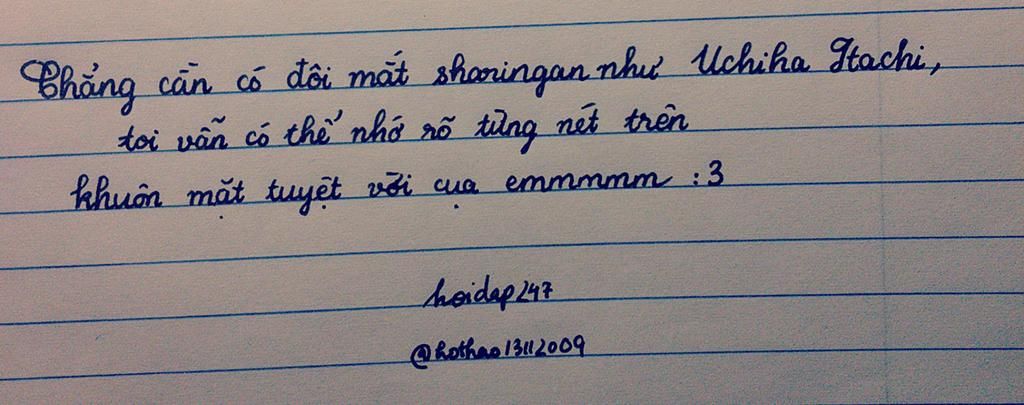 Chẳng cần có đôi mắt sharingan như Uchiha Itachi,
tôi vẫn có thể nhớ rõ từng nét trên
khuôn mặt tuyệt vời cụa emmmmm :3
hoidap247
@hothao13112009